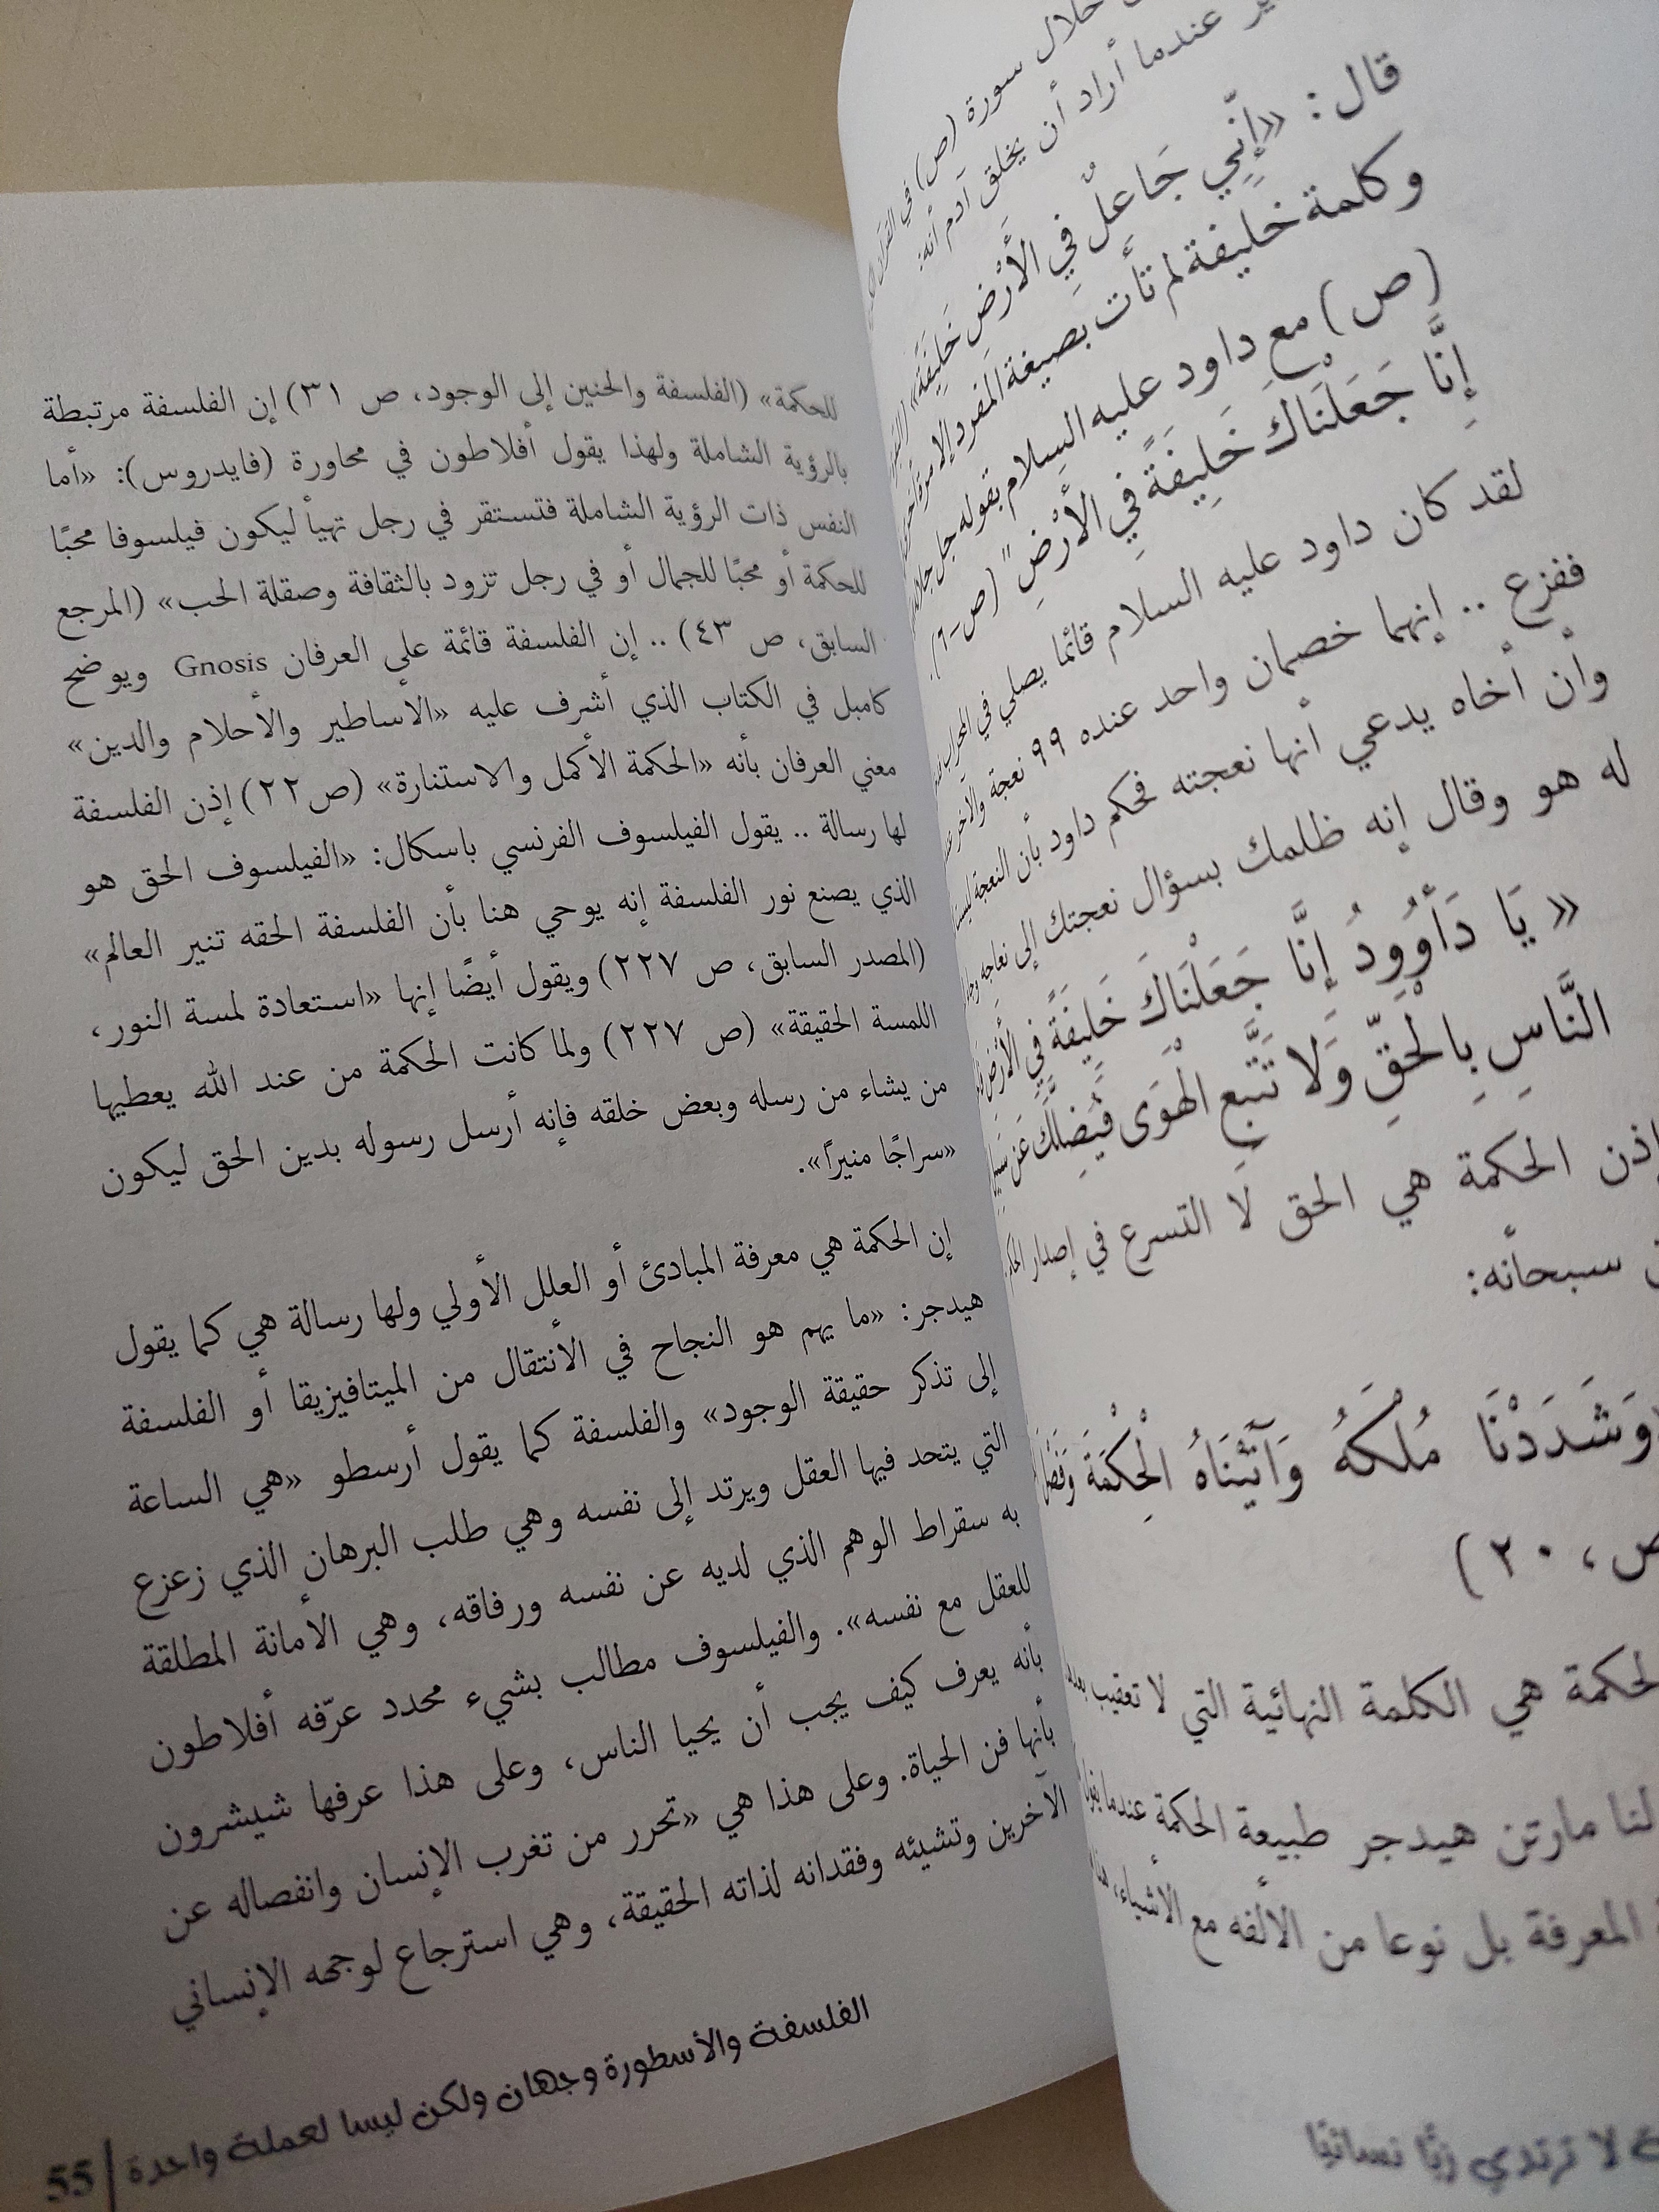 خلال سورة (ص) في
عندما أراد أن يخلق آدم أنه:
قال: «إِنِّي جَاعِلٌ فِي الْأَرْضِ خَلِيفَةً»
وكلمة خليفة لم تأت بصيغة المفرد إلا مرة أخرى
(ص) مع داود عليه السلام بقوله جل جلاله
إِنَّا جَعَلْنَاكَ خَلِيفَةً فِي الْأَرْضِ" (ص-٢٦).
لقد كان داود عليه السلام قائما يصلي في المحراب
ففزع .. إنهما خصمان واحد عنده ٩٩ نعجة والآخر
وأن أخاه يدعي أنها نعجته فحكم داود بأن النعجة ليست
له هو وقال إنه ظلمك بسؤال نعجتك إلى نعاجه
« يَا دَاوُودُ إِنَّا جَعَلْنَاكَ خَلِيفَةً فِي الْأَرْضِ
النَّاسِ بِالْحَقِّ وَلَا تَتَّبِعِ الْهَوَى فَيُضِلَّكَ عَن
إذن الحكمة هي الحق لا التسرع في إصدار
سبحانه:
وَشَدَدْنَا مُلْكَهُ وَآتَيْنَاهُ الْحِكْمَةَ وَفَصْلَ
ص، ٢٠)
الحكمة هي الكلمة النهائية التي لا تعقيب بعدها
لنا مارتن هيدجر طبيعة الحكمة عندما يقول
المعرفة بل نوعا من الألفه مع الأشياء،
لا ترتدي زيًا نسائيًا
للحكمة» (الفلسفة والحنين إلى الوجود، ص ٣١) إن الفلسفة مرتبطة
بالرؤية الشاملة ولهذا يقول أفلاطون في محاورة (فايدروس): «أما
النفس ذات الرؤية الشاملة فتستقر في رجل تهيأ ليكون فيلسوفا محبًا
للحكمة أو محبًا للجمال أو في رجل تزود بالثقافة وصقلة الحب» (المرجع
السابق، ص ٤٣) .. إن الفلسفة قائمة على العرفان Gnosis ويوضح
كامبل في الكتاب الذي أشرف عليه «الأساطير والأحلام والدين»
معني العرفان بأنه «الحكمة الأكمل والاستنارة» (ص٢٢) إذن الفلسفة
لها رسالة .. يقول الفيلسوف الفرنسي باسكال: «الفيلسوف الحق هو
الذي يصنع نور الفلسفة إنه يوحي هنا بأن الفلسفة الحقه تنير العالم»
(المصدر السابق، ص ٢٢٧) ويقول أيضًا إنها «استعادة لمسة النور،
اللمسة الحقيقة» (ص ٢٢٧) ولما كانت الحكمة من عند الله يعطيها
من يشاء من رسله وبعض خلقه فإنه أرسل رسوله بدين الحق ليكون
«سراجًا منيرًا».
إن الحكمة هي معرفة المبادئ أو العلل الأولي ولها رسالة هي كما يقول
هيدجر: «ما يهم هو النجاح في الأنتقال من الميتافيزيقا أو الفلسفة
إلى تذكر حقيقة الوجود» والفلسفة كما يقول أرسطو «هي الساعة
التي يتحد فيها العقل ويرتد إلى نفسه وهي طلب البرهان الذي زعزع
به سقراط الوهم الذي لديه عن نفسه ورفاقه، وهي الأمانة المطلقة
للعقل مع نفسه». والفيلسوف مطالب بشيء محدد عرّفه أفلاطون
بأنه يعرف كيف يجب أن يحيا الناس، وعلى هذا عرفها شيشرون
بأنها فن الحياة. وعلى هذا هي «تحرر من تغرب الإنسان وانفصاله عن
الآخرين وتشيئه وفقدانه لذاته الحقيقة، وهي استرجاع لوجهه الإنساني
الفلسفة والأسطورة وجهان ولكن ليسا لعملة واحدة | 55